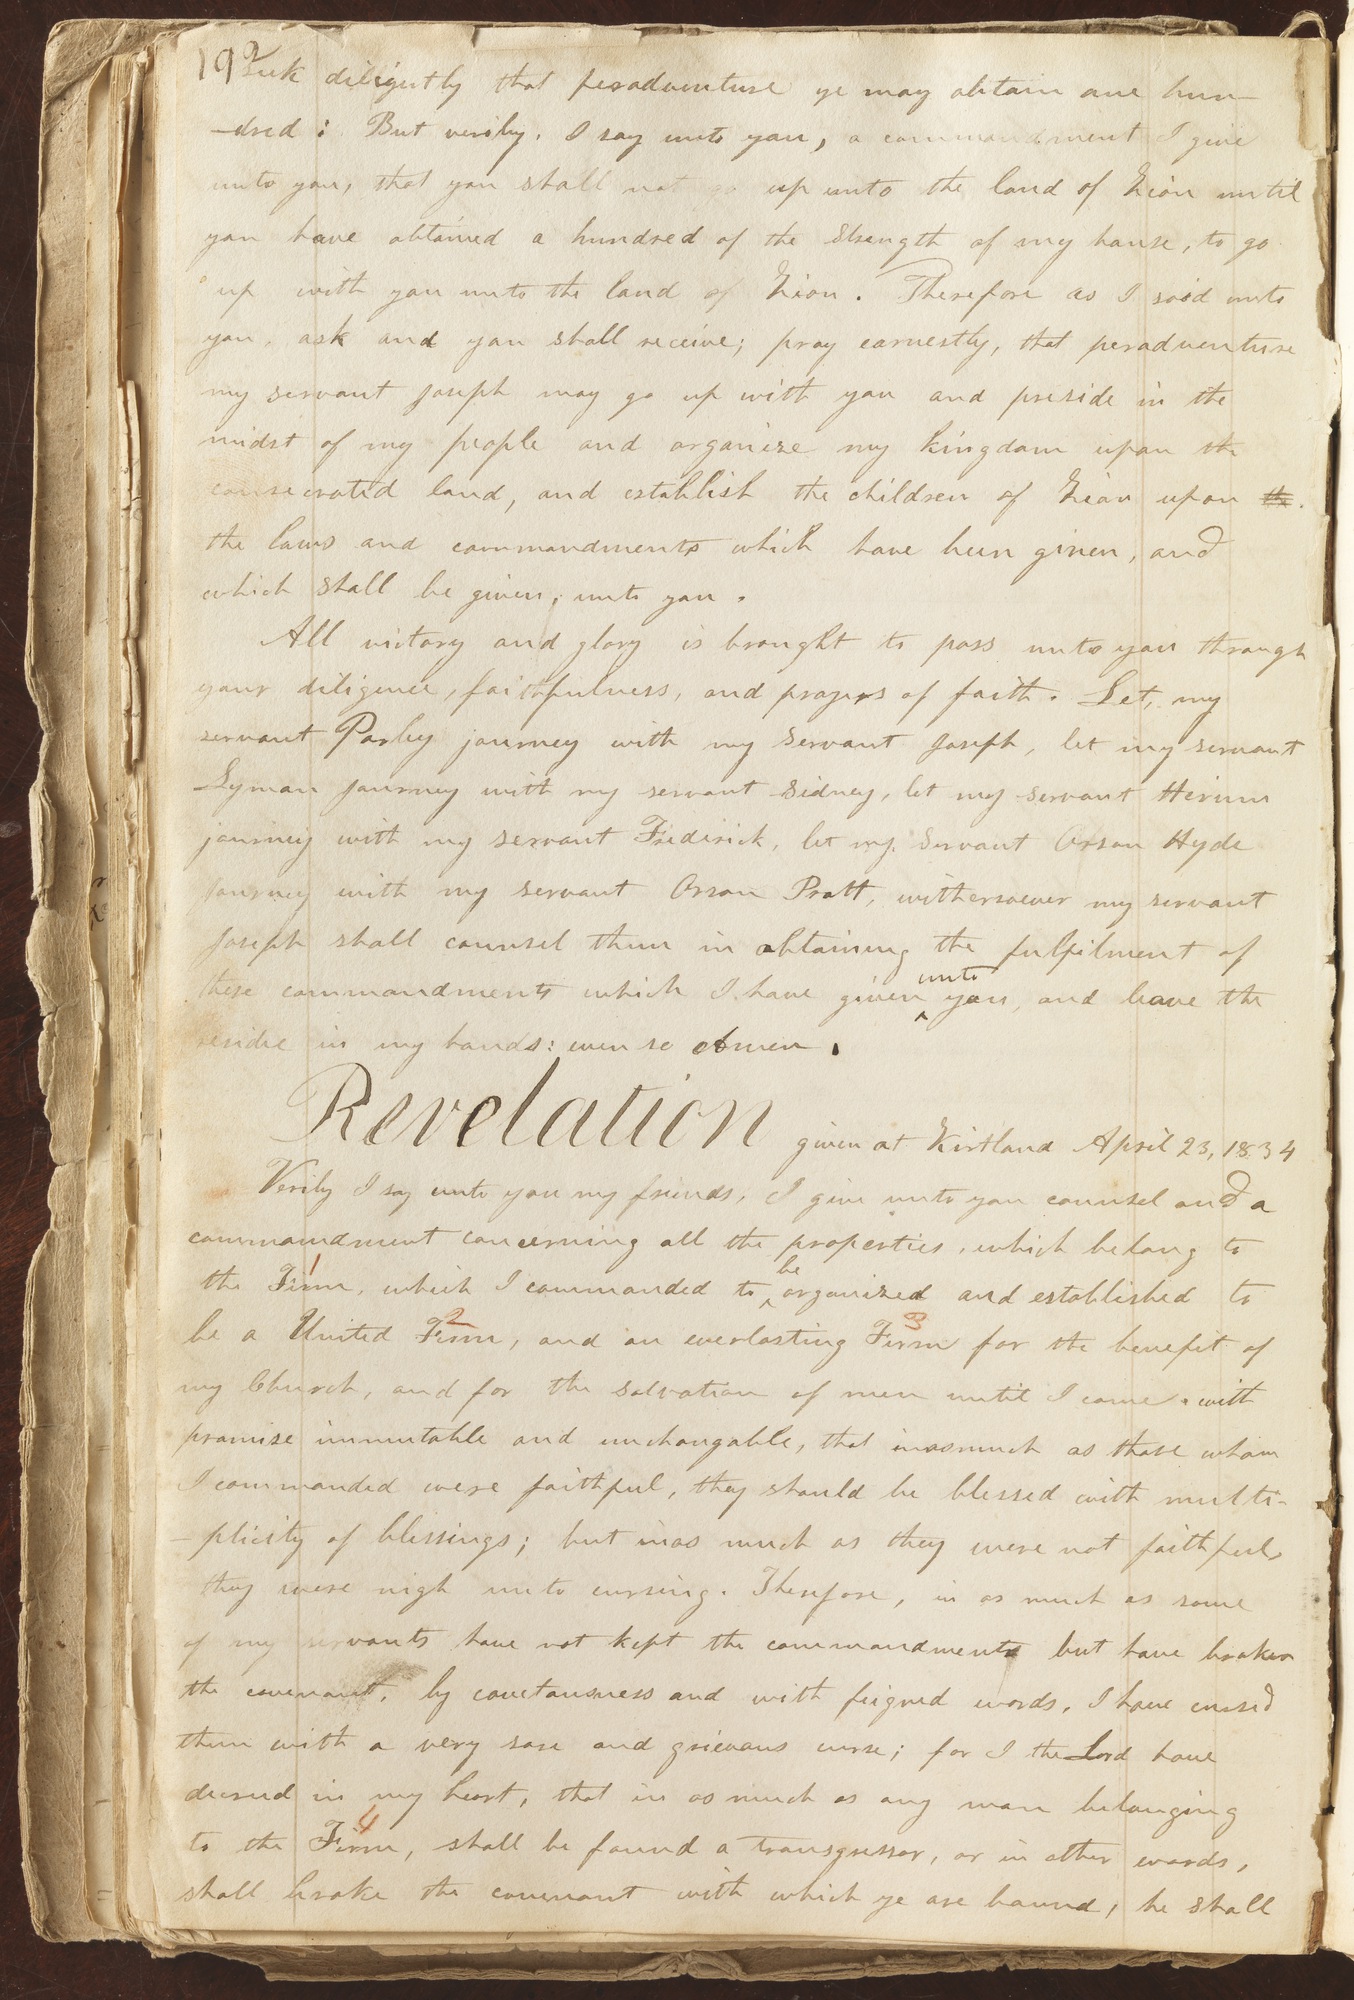 192
Seek diligently that peradventure ye may obtain one hun-
-dred: But verily. I say unto you, a commandment I give
unto you, that you shall not go up unto the land of Zion until
you have obtained a hundred of the strength of my house, to go
up with you unto the land of Zion. Therefore as I said unto
you, ask and you shall receive; pray earnestly, that peradventure
my servant Joseph may go up with you and preside in the
midst of my people and organize my kingdom upon the
consecrated land, and establish the children of Zion upon the.
the laws and commandments which have been given, and
which shall be given, unto you.
All victory and glory is brought to pass unto you through
your diligence, faithfulness, and prayers of faith. Let, my
servant Parley journey with my servant Joseph, let my servant
Lyman journey with my servant Sidney, let my servant Hirum
journey with my servant Frederick, let my servant Orson Hyde
journey with my servant Orson Pratt, withersoever my servant
Joseph shall counsel them in obtaining the fulfilment of
unto
these commandments which I have given ^ you, and leave the
residue in my hands: even so Amen.
Revelation given at Kirtland April 23, 1834
Verily I say unto you my friends, I give unto you counsel and a
commandment concerning all the properties, which belong to
1 be
the Firm, which I commanded to ^ organized and established to
2 3
be a United Firm, and an everlasting Firm for the benefit of
my Church, and for the salvation of men until I come. with
promise immutable and unchangable, that inasmuch as those whom
I commanded were faithful, they should be blessed with multi-
-plicity of blessings; but inas much as they were not faithful,
they were nigh unto cursing. Therefore, in as much as some
of my servants have not kept the commandments but have broken
the covenant, by covetousness and with feigned words, I have cursed
them with a very sore and grievous curse; for I the Lord have
decreed in my heart, that in as much as any man belonging
4
to the Firm, shall be found a transgressor, or in other words,
shall broke the covenant with which ye are bound, he shall